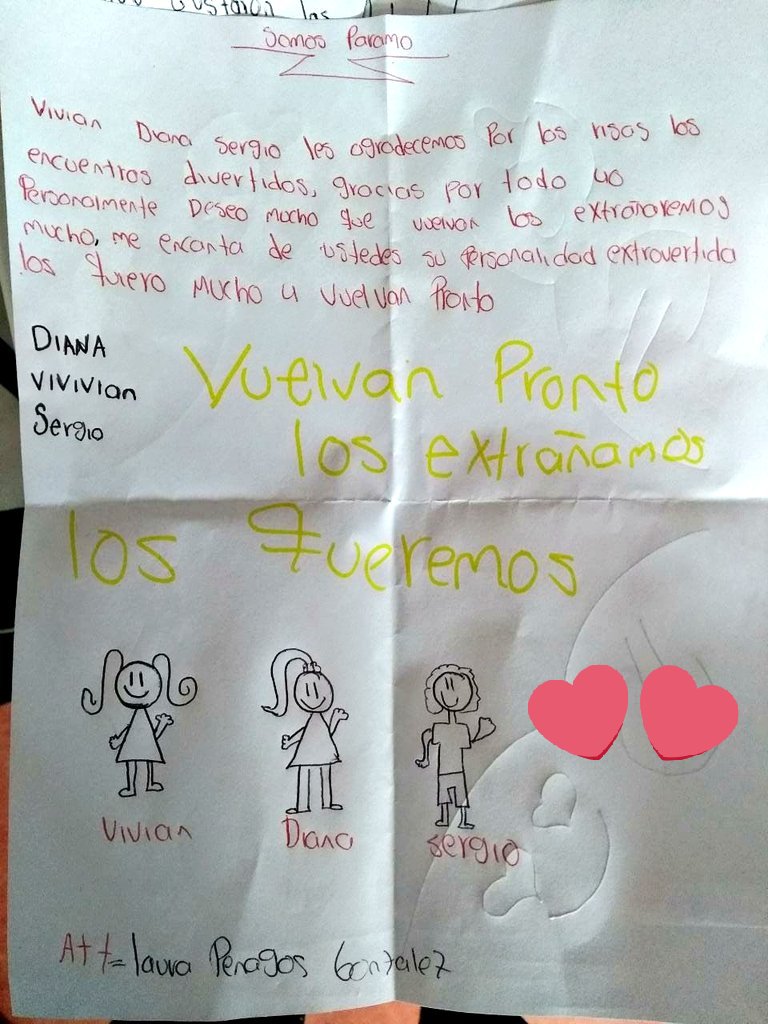 Somos Paramo
Vivian Diana Sergio les agradecemos Por los risas los
encuentros divertidos, gracias por todo yo
Personalmente Deseo mucho que vuelvan los extrañaremos
mucho, me encanta de ustedes su Personalidad extrovertida
los quiero mucho y vuelvan Pronto
DIANA
VIVIVIan
Sergio
Vuelvan Pronto
los extrañamos
los queremos
Vivian Diana sergio
Att= laura Penagos Gonzalez